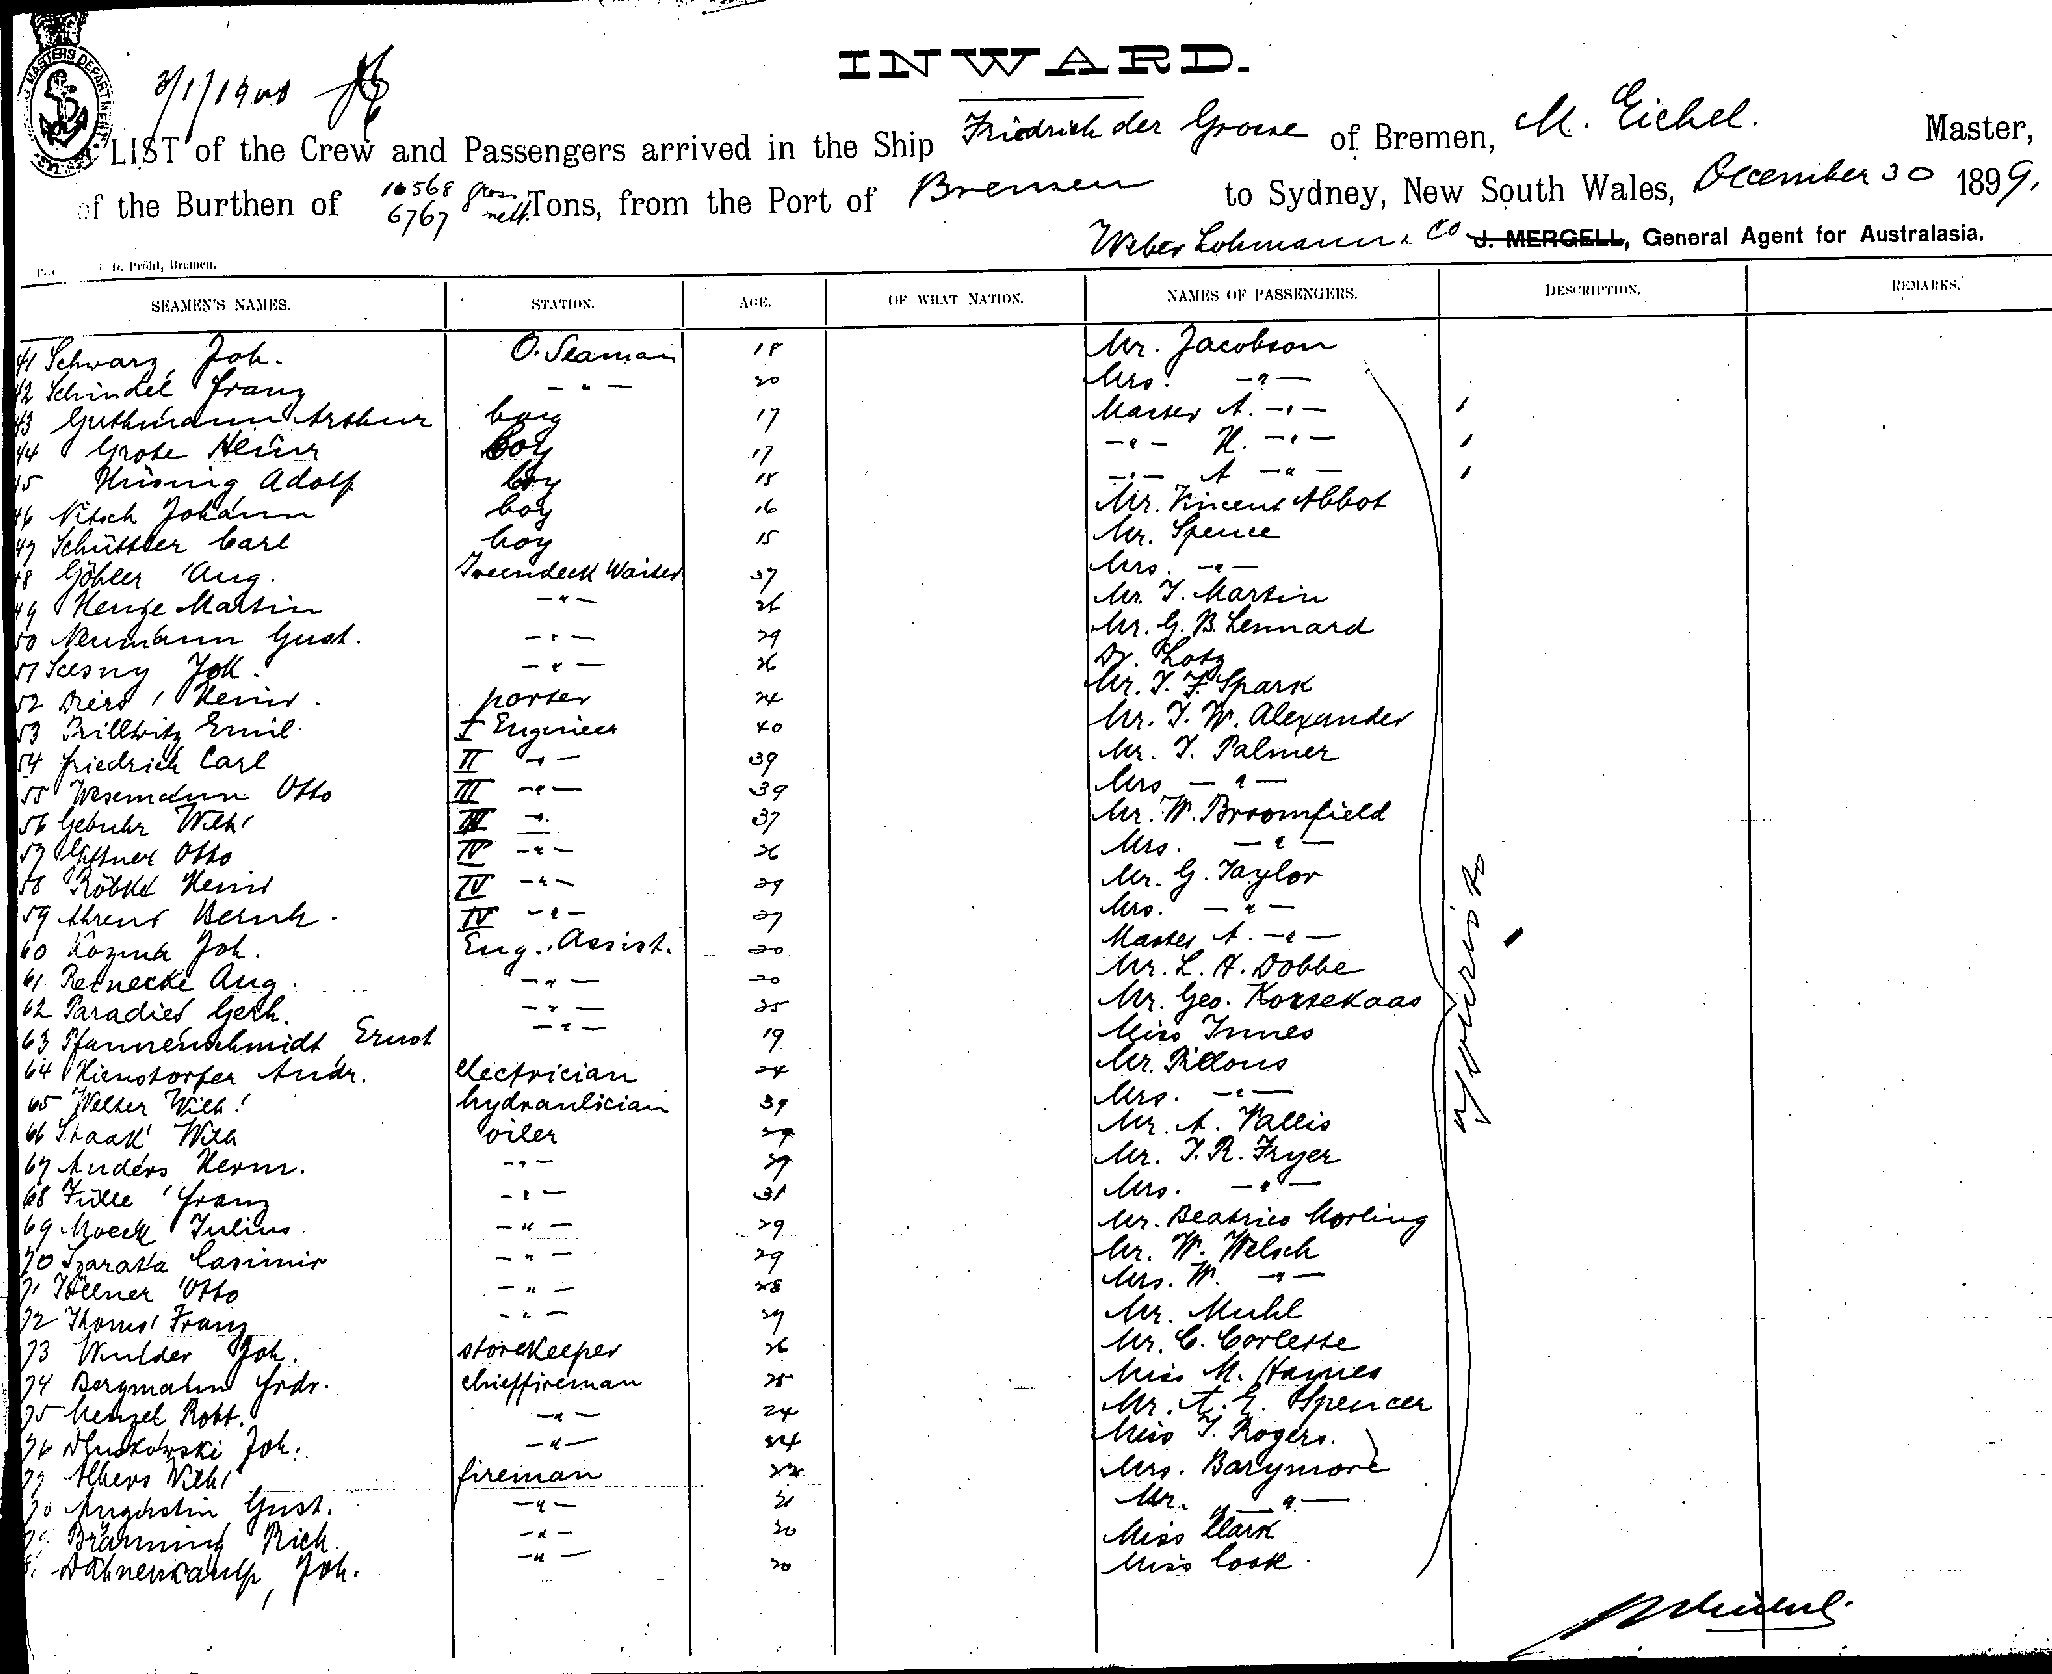 INWARD.
3/1/1900
LIST of the Crew and Passengers arrived in the Ship Friedrich der Grosse of Bremen, M. Eichel. Master,
of the Burthen of 10568 gross 6767 nett. Tons, from the Port of Bremen to Sydney, New South Wales, December 30 1899.
Weber Lohmann & Co J. MERGELL, General Agent for Australasia.
Pröhl, Bremen.
SEAMEN'S NAMES. STATION. AGE. OF WHAT NATION. NAMES OF PASSENGERS. DESCRIPTION. REMARKS.
41 Schwarz Joh. O. Seaman 18 Mr. Jacobson
42 Schindel Franz —"— 20 Mrs. —"—
43 Guthmann Arthur boy 17 Master A. —"—
44 Grote Heinr boy 17 —"— H. —"—
45 Hüsing Adolf boy 15 —"— A —"—
46 Nitsch Johann boy 16 Mr. Vincent Abbot
47 Schüttler Carl boy 15 Mr. Spence
48 Göhler Aug. Tweendeck Waiter 37 Mrs. —"—
49 Henze Martin —"— 26 Mr. T. Martin
50 Neumann Gust. —"— 29 Mr. G. B. Lennard
51 Sczesny Joh. —"— 26 Dr. Lotz
52 Diers Heinr. porter 24 Mr. T. F. Spark
53 Prillwitz Emil. I Engineer 40 Mr. T. W. Alexander
54 Friedrich Carl II —"— 39 Mr. T. Palmer
55 Wesemann Otto III —"— 39 Mrs —"—
56 Gebuhr Wilh. —"— 37 Mr. W. Broomfield
57 Otto IV —"— 26 Mrs. —"—
58 Röbke Heinr IV —"— 29 Mr. G. Taylor
59 Ahrens Bernh. IV —"— 27 Mrs. —"—
60 Kozma Joh. Eng. Assist. 20 Master A. —"—
61 Reinecke Aug. —"— 20 Mr. L. A. Dobbe
62 Paradies Gerh. —"— 25 Mr. Geo. Kortekaas
63 Pfannenschmidt Ernst —"— 19 Miss Innes
64 Hienstorfer Andr. electrician 24 Mr. Pillous
65 Welter Wilh. hydraulician 39 Mrs. —"—
66 Staak Wilh oiler 29 Mr. A. Wallis
67 Anders Herm. —"— 29 Mr. T. R. Fryer
68 Tülle Franz —"— 31 Mrs. —"—
69 Moeck Julius. —"— 29 Mr. Beatrice Morling
70 Szarata Casimir —"— 29 Mr. W. Welsch
71 Töllner Otto —"— 28 Mrs. W. —"—
72 Thoms Franz —"— 29 Mr. Muhl
73 Mulder Joh. storekeeper 26 Mr. C. Corlette
74 Bergmann Frdr. chieffireman 25 Miss M. Haynes
75 Menzel Robt. —"— 24 Mr. A. E. Spencer
76 Dluskowski Joh. —"— 24 Miss T. Rogers.
77 Albers Wilh. fireman 22 Mrs. Barymore
Augustin Gust. —"— 21 Mr. —"—
Bräuning Rich. —"— 20 Miss Clark
Dähnenkamp, Joh. —"— 20 Miss Cook.
Tourists